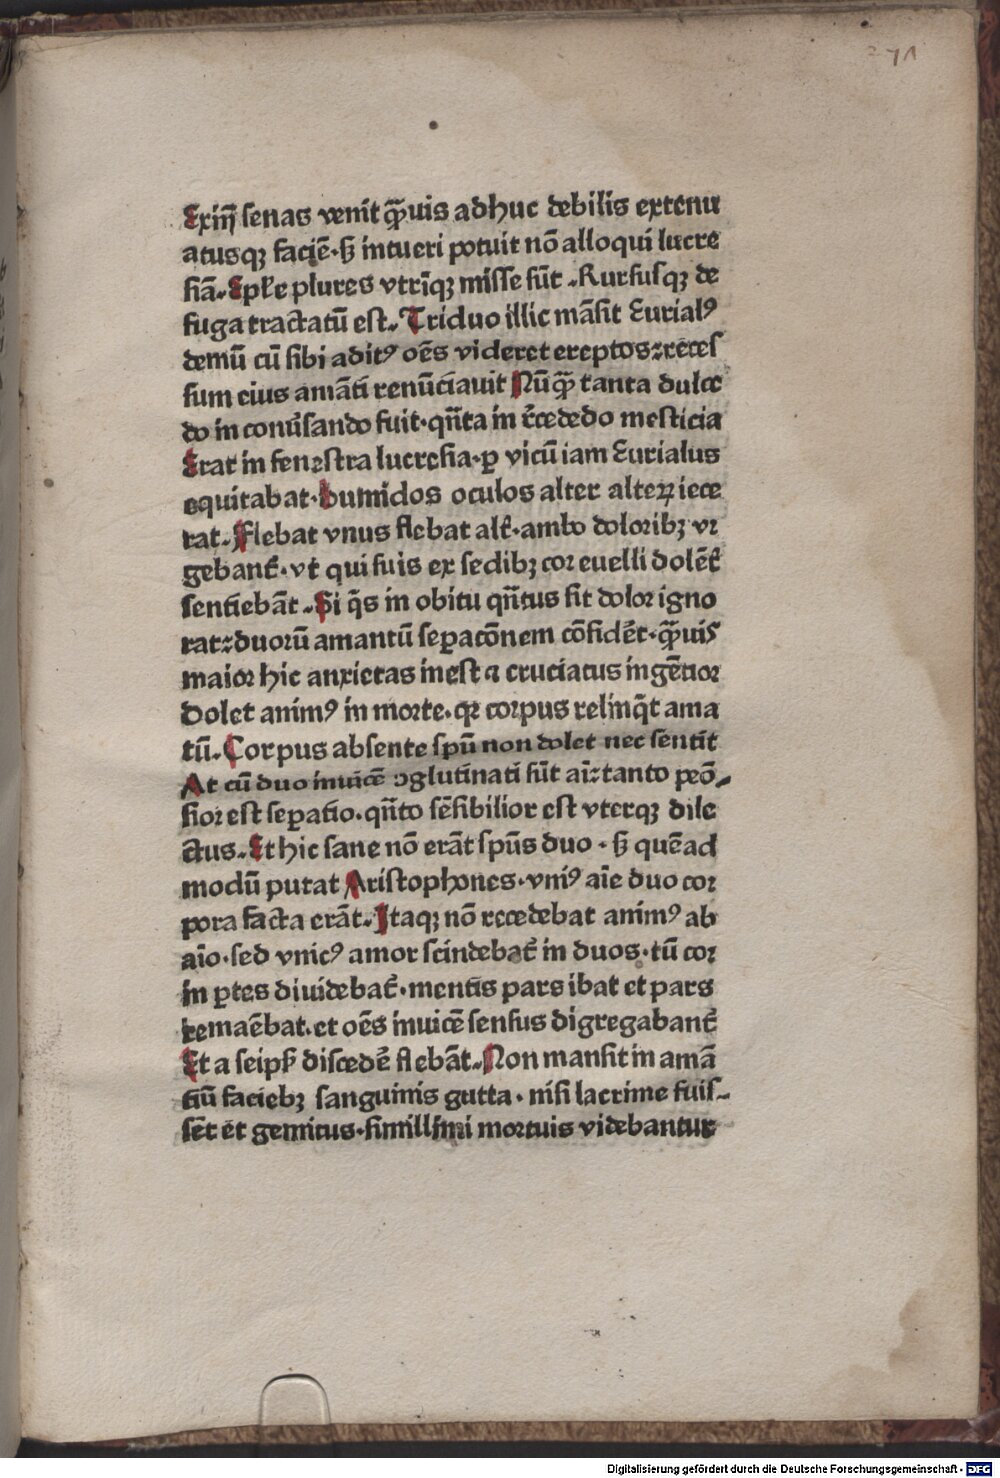 271
Exinſ ſenas venit qᷓuis adhuc debilis extenu
atusqꝫ faciē·ſꝫ intueri potuit nō alloqui lucre
ſiā. Epl'e plures vtrīqꝫ miſſe ſūt. Rurſuſqꝫ de
fuga tractatū eſt. Triduo illic māſit Eurialꝰ
demū cū ſibi aditꝰ oēs videret ereptos:receſ
ſum eius amāti renūciauit Nūqᷓ tanta dulce
do in conūſando fuit·qn̄ta in r̄cededo meſticia
Erat in feneſtra lucreſia·ꝑ vicū iam Eurialus
equitabat·humidos oculos alter alteꝝ iece
rat. Flebat vnus flebat alt̄·ambo doloribꝫ vr
gebant̄·vt qui ſuis ex ſedibꝫ cor euelli dolēt̄
ſentiebāt. Si q̄s in obitu qn̄tus ſit dolor igno
rat:duorū amantū ſeꝑacōnem cōſidēt·qᷓuiſ
maior hic anxietas ineſt ⁊ cruciatus ingētior
Dolet animꝰ in morte·qꝛ corpus relinq̄t ama
tū. Corpus abſente ſpū non dolet nec ſentit
At cū duo inuicē ꝯglutinati ſūt aīꝛtanto peō
ſior eſt ſeꝑatio·qn̄to ſēſibilior eſt vterqꝫ dile
ctus. Et hic ſane nō erāt ſpūs duo·ſꝫ quēad
modū putat Ariſtophones·vniꝰ aīe duo cor
pora facta erāt. Itaqꝫ nō recedebat animꝰ ab
aīo·ſed vnicꝰ amor ſcindebat̄ in duos·tū cor
in ꝑtes diuidebat̄·mentis pars ibat et pars
remaēbat·et oēs inuicē ſenſus digregabant̄
Et a ſeipſ̄ diſcedē flebāt. Non manſit in amā
tiū faciebꝫ ſanguinis gutta·niſi lacrime fuiſ
ſēt et̄ gemitus·ſimillimi mortuis videbantur
Digitalisierung gefördert durch die Deutsche Forschungsgemeinschaft - DFG